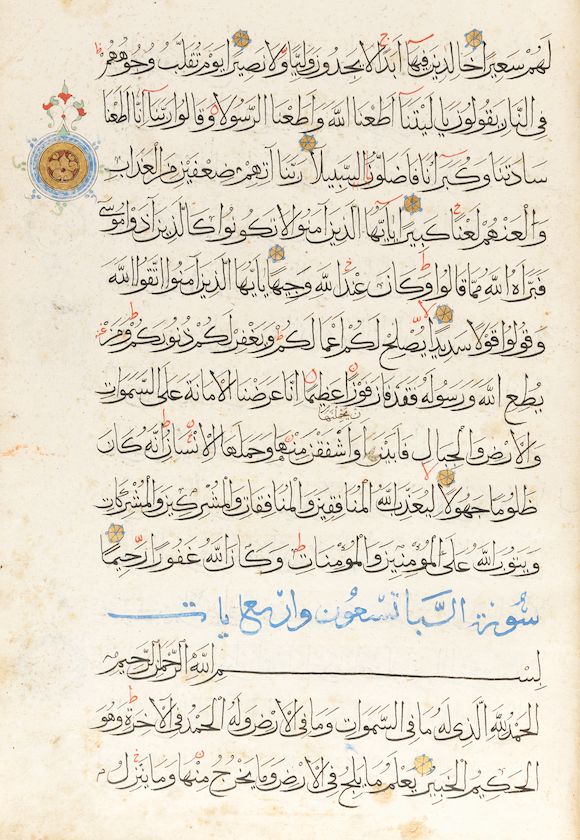 لَهُمْ سَعِيرًا خَالِدِينَ فِيهَا أَبَدًا لَا يَجِدُونَ وَلِيًّا وَلَا نَصِيرًا يَوْمَ تُقَلَّبُ وُجُوهُهُمْ
فِي النَّارِ يَقُولُونَ يَا لَيْتَنَا أَطَعْنَا اللَّهَ وَأَطَعْنَا الرَّسُولَا وَقَالُوا رَبَّنَا إِنَّا أَطَعْنَا
سَادَتَنَا وَكُبَرَاءَنَا فَأَضَلُّونَا السَّبِيلَا رَبَّنَا آتِهِمْ ضِعْفَيْنِ مِنَ الْعَذَابِ
وَالْعَنْهُمْ لَعْنًا كَبِيرًا يَا أَيُّهَا الَّذِينَ آمَنُوا لَا تَكُونُوا كَالَّذِينَ آذَوْا مُوسَى
فَبَرَّأَهُ اللَّهُ مِمَّا قَالُوا وَكَانَ عِنْدَ اللَّهِ وَجِيهًا يَا أَيُّهَا الَّذِينَ آمَنُوا اتَّقُوا اللَّهَ
وَقُولُوا قَوْلًا سَدِيدًا يُصْلِحْ لَكُمْ أَعْمَالَكُمْ وَيَغْفِرْ لَكُمْ ذُنُوبَكُمْ وَمَنْ
يُطِعِ اللَّهَ وَرَسُولَهُ فَقَدْ فَازَ فَوْزًا عَظِيمًا إِنَّا عَرَضْنَا الْأَمَانَةَ عَلَى السَّمَوَاتِ
ان يحملنها
وَالْأَرْضِ وَالْجِبَالِ فَأَبَيْنَ وَأَشْفَقْنَ مِنْهَا وَحَمَلَهَا الْإِنْسَانُ إِنَّهُ كَانَ
ظَلُومًا جَهُولًا لِيُعَذِّبَ اللَّهُ الْمُنَافِقِينَ وَالْمُنَافِقَاتِ وَالْمُشْرِكِينَ وَالْمُشْرِكَاتِ
وَيَتُوبَ اللَّهُ عَلَى الْمُؤْمِنِينَ وَالْمُؤْمِنَاتِ وَكَانَ اللَّهُ غَفُورًا رَحِيمًا
سُورَة السَّبَا تسعُون واربع يات
بِسْمِ اللَّهِ الرَّحْمَنِ الرَّحِيمِ
الْحَمْدُ لِلَّهِ الَّذِي لَهُ مَا فِي السَّمَوَاتِ وَمَا فِي الْأَرْضِ وَلَهُ الْحَمْدُ فِي الْآخِرَةِ وَهُوَ
الْحَكِيمُ الْخَبِيرُ يَعْلَمُ مَا يَلِجُ فِي الْأَرْضِ وَمَا يَخْرُجُ مِنْهَا وَمَا يَنْزِلُ